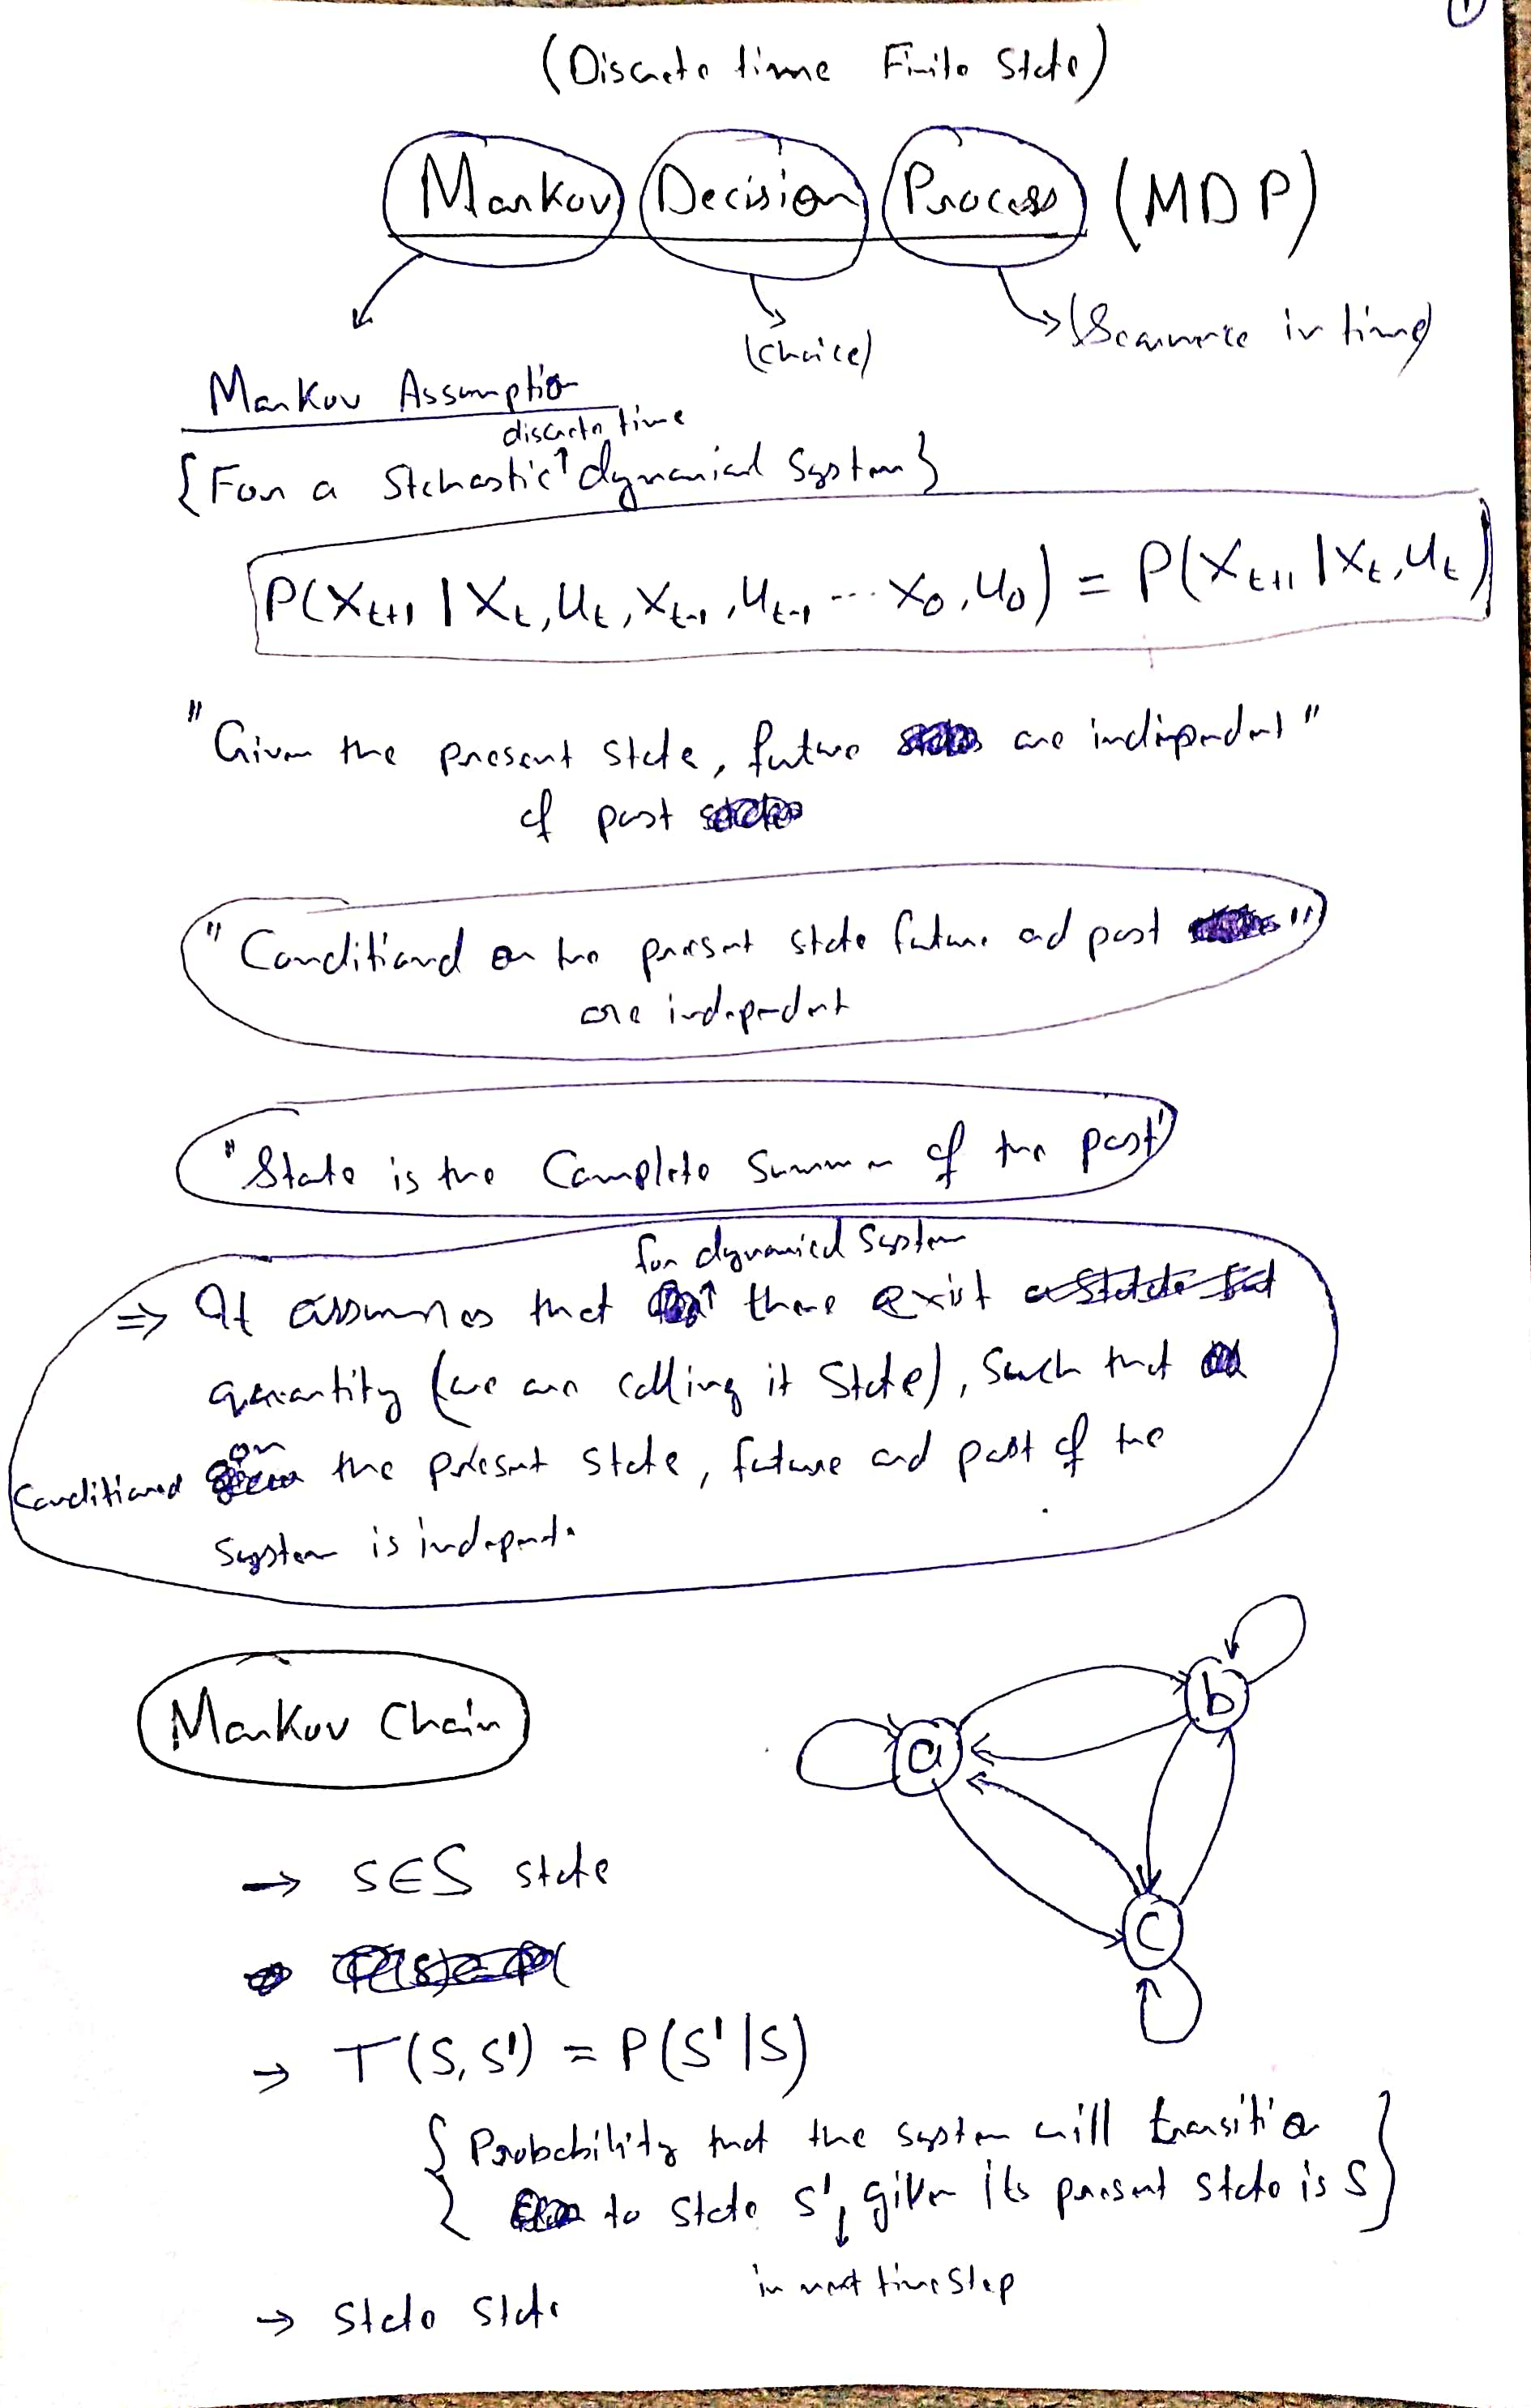 1
(Discrete time Finite State)
Markov Decision Process (MDP)
(Choice)
(Sequence in time)
Markov Assumption
discrete time
{For a Stchastic dynamical System}
P(X_{t+1} | X_t, U_t, X_{t-1}, U_{t-1} ... X_0, U_0) = P(X_{t+1} | X_t, U_t)
"Given the present state, future are independent"
of past
"Conditioned on the present state future and past"
are independent
"State is the Complete Summary of the past"
for dynamical System
⇒ It assumes that there exist
quantity (we are calling it State), Such that
on
Conditioned the present state, future and past of the
System is independent.
Markov Chain
a
b
c
→ S∈S state
→ T(S,S') = P(S'|S)
{Probability that the system will transition
to state S', given its present state is S}
in next time step
→ State State